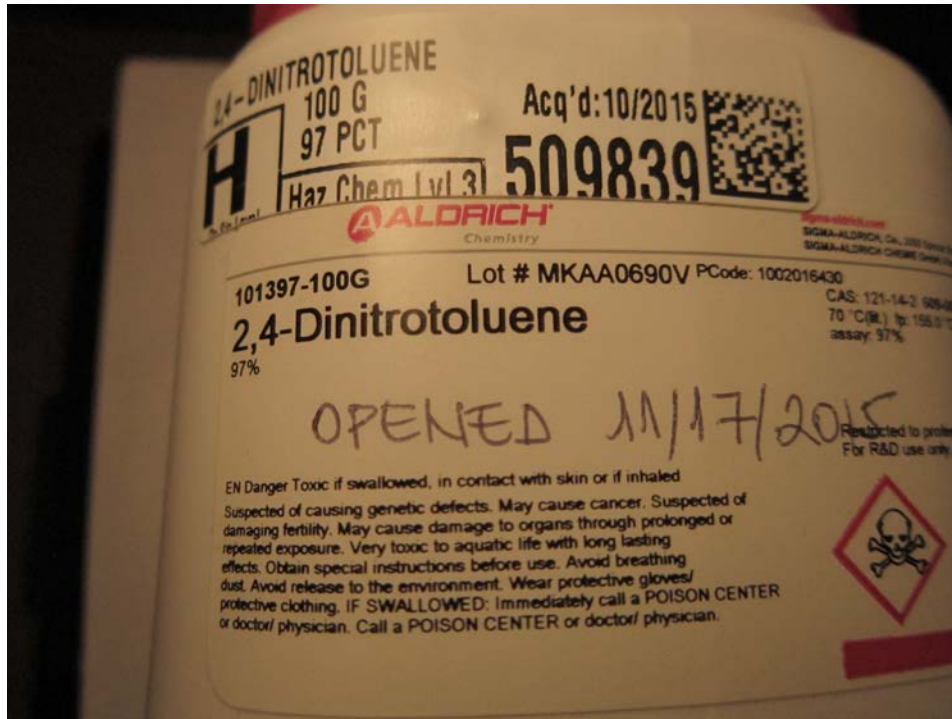 2,4-DINITROTOLUENE
100 G
97 PCT
Acq'd:10/2015
H
Haz Chem Lvl 3
509839
ALDRICH
Chemistry
sigma-aldrich.com
SIGMA-ALDRICH, Co.,
SIGMA-ALDRICH CHEMIE GmbH,
101397-100G
Lot # MKAA0690V PCode: 1002016430
2,4-Dinitrotoluene
97%
CAS: 121-14-2
70 °C(lit.) fp:
assay: 97%
OPENED 11/17/2015
Restricted to
For R&D use only.
EN Danger Toxic if swallowed, in contact with skin or if inhaled
Suspected of causing genetic defects. May cause cancer. Suspected of
damaging fertility. May cause damage to organs through prolonged or
repeated exposure. Very toxic to aquatic life with long lasting
effects. Obtain special instructions before use. Avoid breathing
dust. Avoid release to the environment. Wear protective gloves/
protective clothing. IF SWALLOWED: Immediately call a POISON CENTER
or doctor/ physician. Call a POISON CENTER or doctor/ physician.